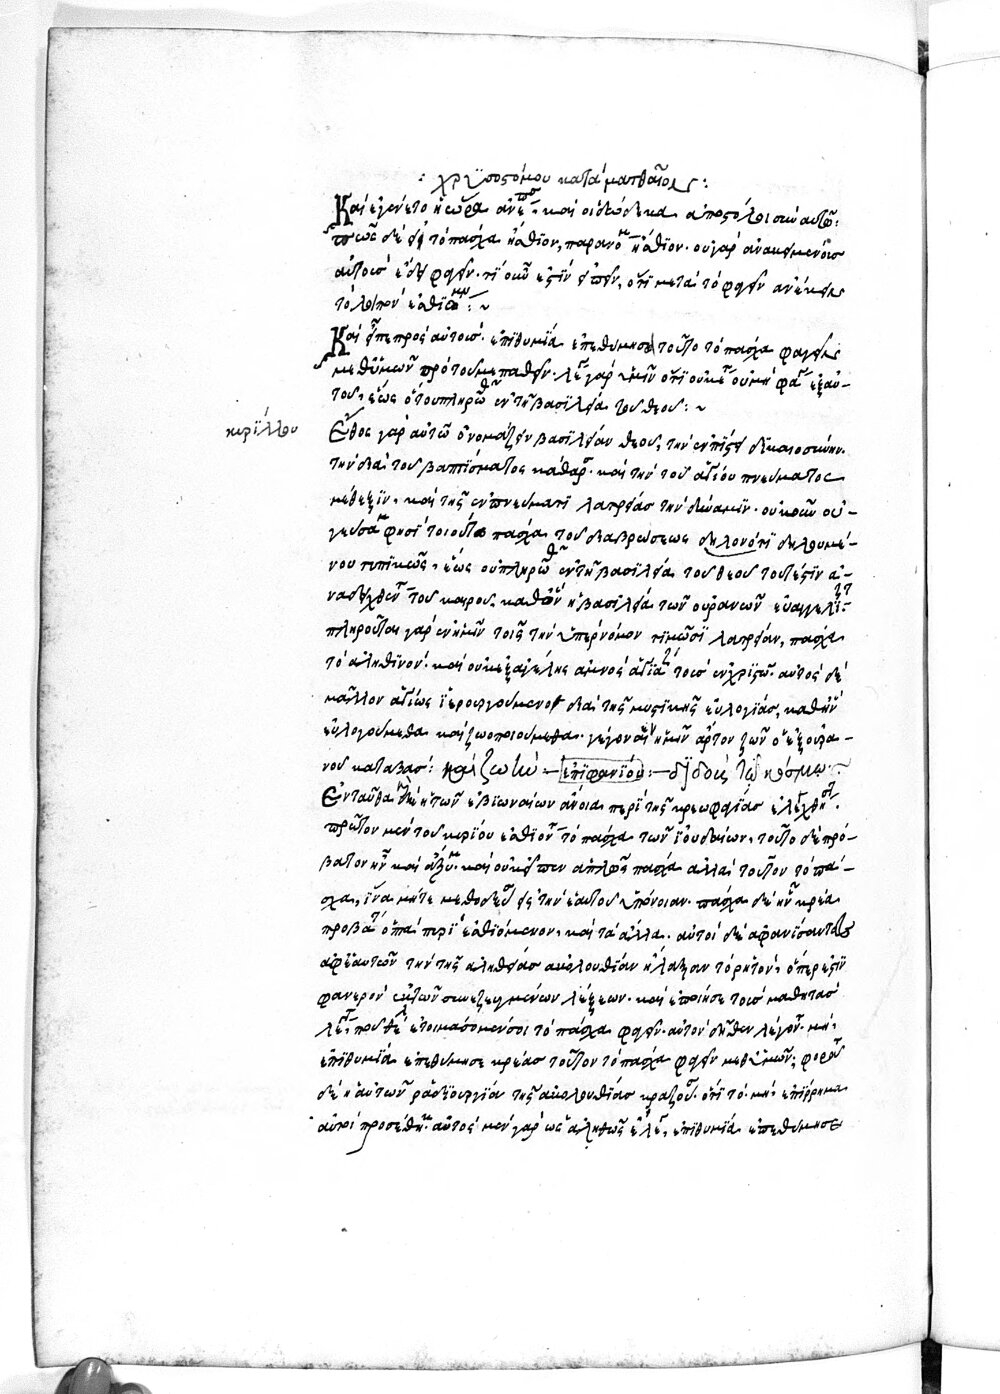 : χρυσοστόμου κατὰ ματθαῖον :
Καὶ ἐγένετο ἡ ὥρα ἀνέπε· καὶ οἱ δώδεκα ἀπόστολοι σὺν αὐτῷ:
πῶς δὲ τὸ πάσχα ἤσθιον, παρανομ ἤσθιον· οὐ γὰρ ἀνακειμένους
αὐτοὺς ἔδει φαγεῖν· τί οὖν ἐστὶν εἰπεῖν, ὅτι μετὰ τὸ φαγεῖν ἀνέκειντο
τὸ λοιπὸν ἐσθίομ :~
Καὶ εἶπε πρὸς αὐτούς· ἐπιθυμία ἐπεθύμησα τοῦτο τὸ πάσχα φαγεῖν
μεθ' ὑμῶν πρὸ τοῦ με παθεῖν· λέγ γὰρ ὑμῖν ὅτι οὐκέτ οὐ μὴ φάγ ἐξ αὐ-
τοῦ, ἕως ὅτου πληρωθ ἐν τῇ βασιλεία τοῦ θεοῦ: ~
κυρίλλου
Ἔθος γὰρ αὐτῶ ὀνομάζειν βασιλείαν θεοῦ, τὴν ἐν πίστει δικαιοσύνην.
τὴν διὰ τοῦ βαπτίσματος κάθαρσ· καὶ τὴν τοῦ ἁγίου πνεύματος
μέθεξιν, καὶ τῆς ἐν πνεύματι λατρείας τὴν δύναμιν· οὐκοῦν οὐ
γεύσομ φησὶ τοιούτου πάσχα τοῦ διὰ βρώσεως δηλονότι δηλουμέ-
νου τυπικῶς, ἕως οὗ πληρωθ ἐν τῇ βασιλεία τοῦ θεοῦ τουτέστιν ἀ-
ναδειχθέντ τοῦ καιροῦ, καθ' ὃν ἡ βασιλεία τῶν οὐρανῶν εὐαγγελίζετ
πληροῦται γὰρ ἐν ἡμῖν τοῖς τὴν ὑπὲρ νόμον τιμῶσι λατρείαν, πάσχα
τὸ ἀληθινόν· καὶ οὐκ ἐξ ἀγέλης ἀμνὸς ἁγιάζ τοὺς ἐν χριστῶ· αὐτὸς δὲ
μᾶλλον ἁγίως ἱερουργούμενος διὰ τῆς μυστικῆς εὐλογίας, καθ' ἣν
εὐλογούμεθα καὶ ζωοποιούμεθα· γέγονε γὰρ ἡμῖν ἄρτον ζῶν ὁ ἐξ οὐρα-
νοῦ καταβάς: καὶ ζωὴν – ἐπιφανίου – διδοὺς τῶ κόσμω :~
Ἐνταῦθα ἡ τῶν ἐβιωναίων ἄνοια περὶ τῆς κρεωφαγίας ἐλέγχθητ·
πρῶτον μὲν τοῦ κυρίου ἐσθίοντ τὸ πάσχα τῶν ἰουδαίων, τοῦτο δὲ πρό-
βατον ἦν καὶ ἄζυμ· καὶ οὐκ εἶπεν ἁπλῶς πάσχα ἀλλὰ τοῦτον τὸ πά-
σχα, ἵνα μή τε μεθοδεύσ εἰς τὴν ἑαυτοῦ ὑπόνοιαν· πάσχα δὲ ἦν κρέα
προβάτ ὀπτὰ πυρὶ ἐσθιόμενον, καὶ τὰ ἄλλα· αὐτοὶ δὲ ἀφανίσαντες
ἀφ' ἑαυτῶν τὴν τῆς ἀληθείας ἀκολουθίαν ἤλλαξαν τὸ ῥητόν, ὅπερ ἐστὶν
φανερὸν ἐκ τῶν συνεζευγμένων λέξεων· καὶ ἐποίησε τοὺς μαθητὰς
λέγ· ποῦ θέλ ἑτοιμάσομέν σοι τὸ πάσχα φαγεῖν· αὐτὸν δῆθεν λέγοντ· μὴ
ἐπιθυμία ἐπεθύμησα κρέας τοῦτον τὸ πάσχα φαγεῖν μεθ' ὑμῶν; φορᾶτ
δὲ ἡ αὐτῶν ῥαδιουργία τῆς ἀκολουθίας κραζούσ· ὅτι τὸ μὴ ἐπίρρημα
αὐτοὶ προσέθηκ· αὐτὸς μὲν γὰρ ὡς ἀληθῶς ἔλεγ, ἐπιθυμία ἐπεθύμησα